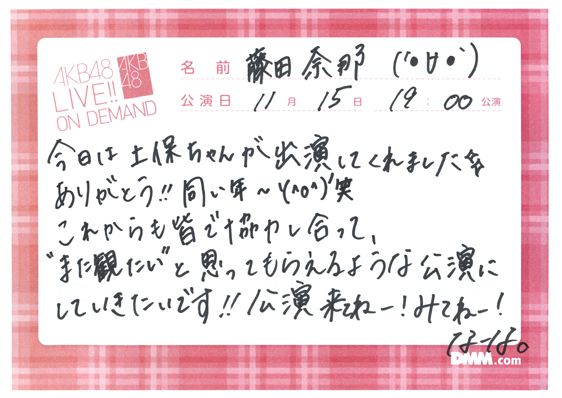 AKB48
LIVE!!
ON DEMAND
AKB
48
名前 藤田奈那 (´•∀•`)
公演日 11月15日 19:00公演
今日は土保ちゃんが出演してくれました☆
ありがとう!!同い年〜\(^o^)/笑
これからも皆で協力し合って、
"また観たい"と思ってもらえるような公演に
していきたいです!!公演来てねー!みてねー!
なーな。
DMM.com